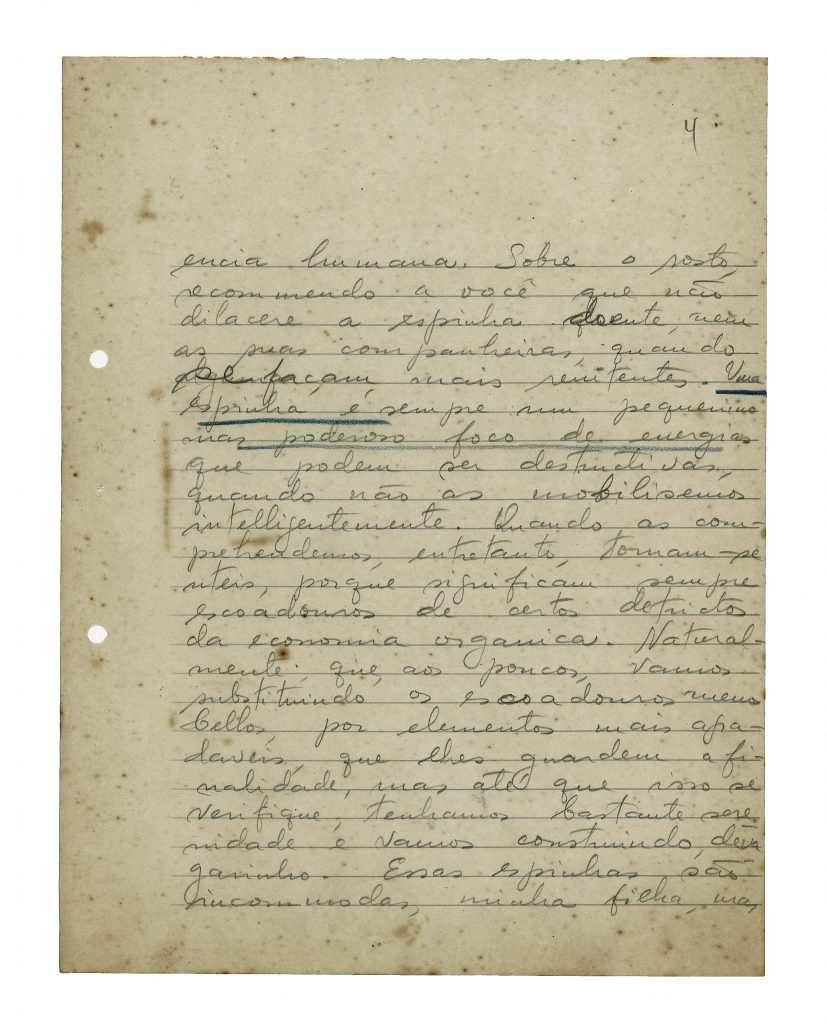 4
encia humana. Sobre o rosto,
recommendo a você que não
dilacere a espinha doente, nem
as suas companheiras, quando
se façam mais renitentes. Uma
espinha, é sempre um pequenino
mas poderoso foco de energias
que podem ser destructivas,
quando não as mobilisemos
intelligentemente. Quando as com-
prehendemos, entretanto, tornam-se
uteis, porque significam sempre
escoadouros de certos detrictos
da economia organica. Natural-
mente, que, aos poucos, vamos
substituindo os escoadouros menos
bellos, por elementos mais agra-
daveis, que lhes guardem a fi-
nalidade, mas até que isso se
verifique, tenhamos bastante sere-
nidade e vamos construindo, deva
garinho. Essas espinhas são
incommodas, minha filha, mas,